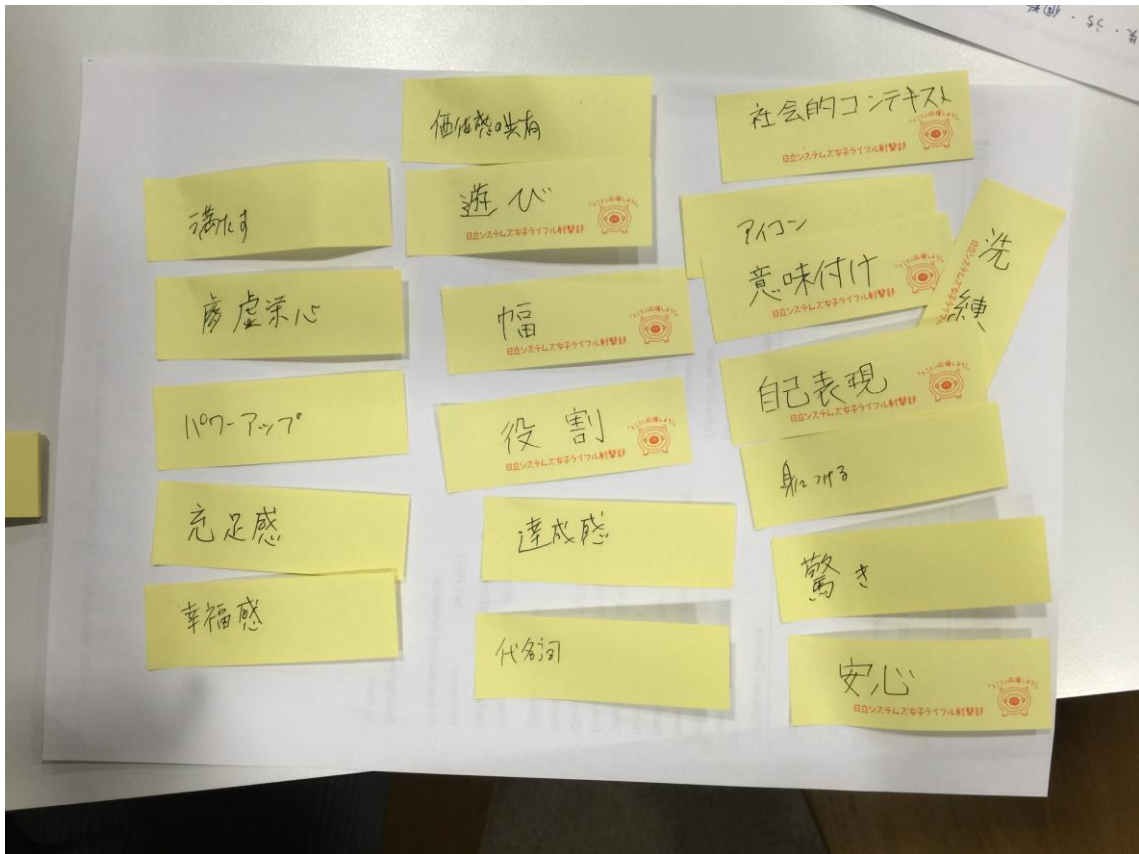 価値感の共有
遊び
日立システムズ女子ライフル射撃部
満たす
虚栄心
幅
日立システムズ女子ライフル射撃部
パワーアップ
役割
日立システムズ女子ライフル射撃部
充足感
達成感
幸福感
代名詞
社会的コンテキスト
日立システムズ女子ライフル射撃部
アイコン
意味付け
日立システムズ女子ライフル射撃部
洗練
日立システムズ女子ライフル
自己表現
日立システムズ女子ライフル射撃部
身につける
驚き
安心
日立システムズ女子ライフル射撃部